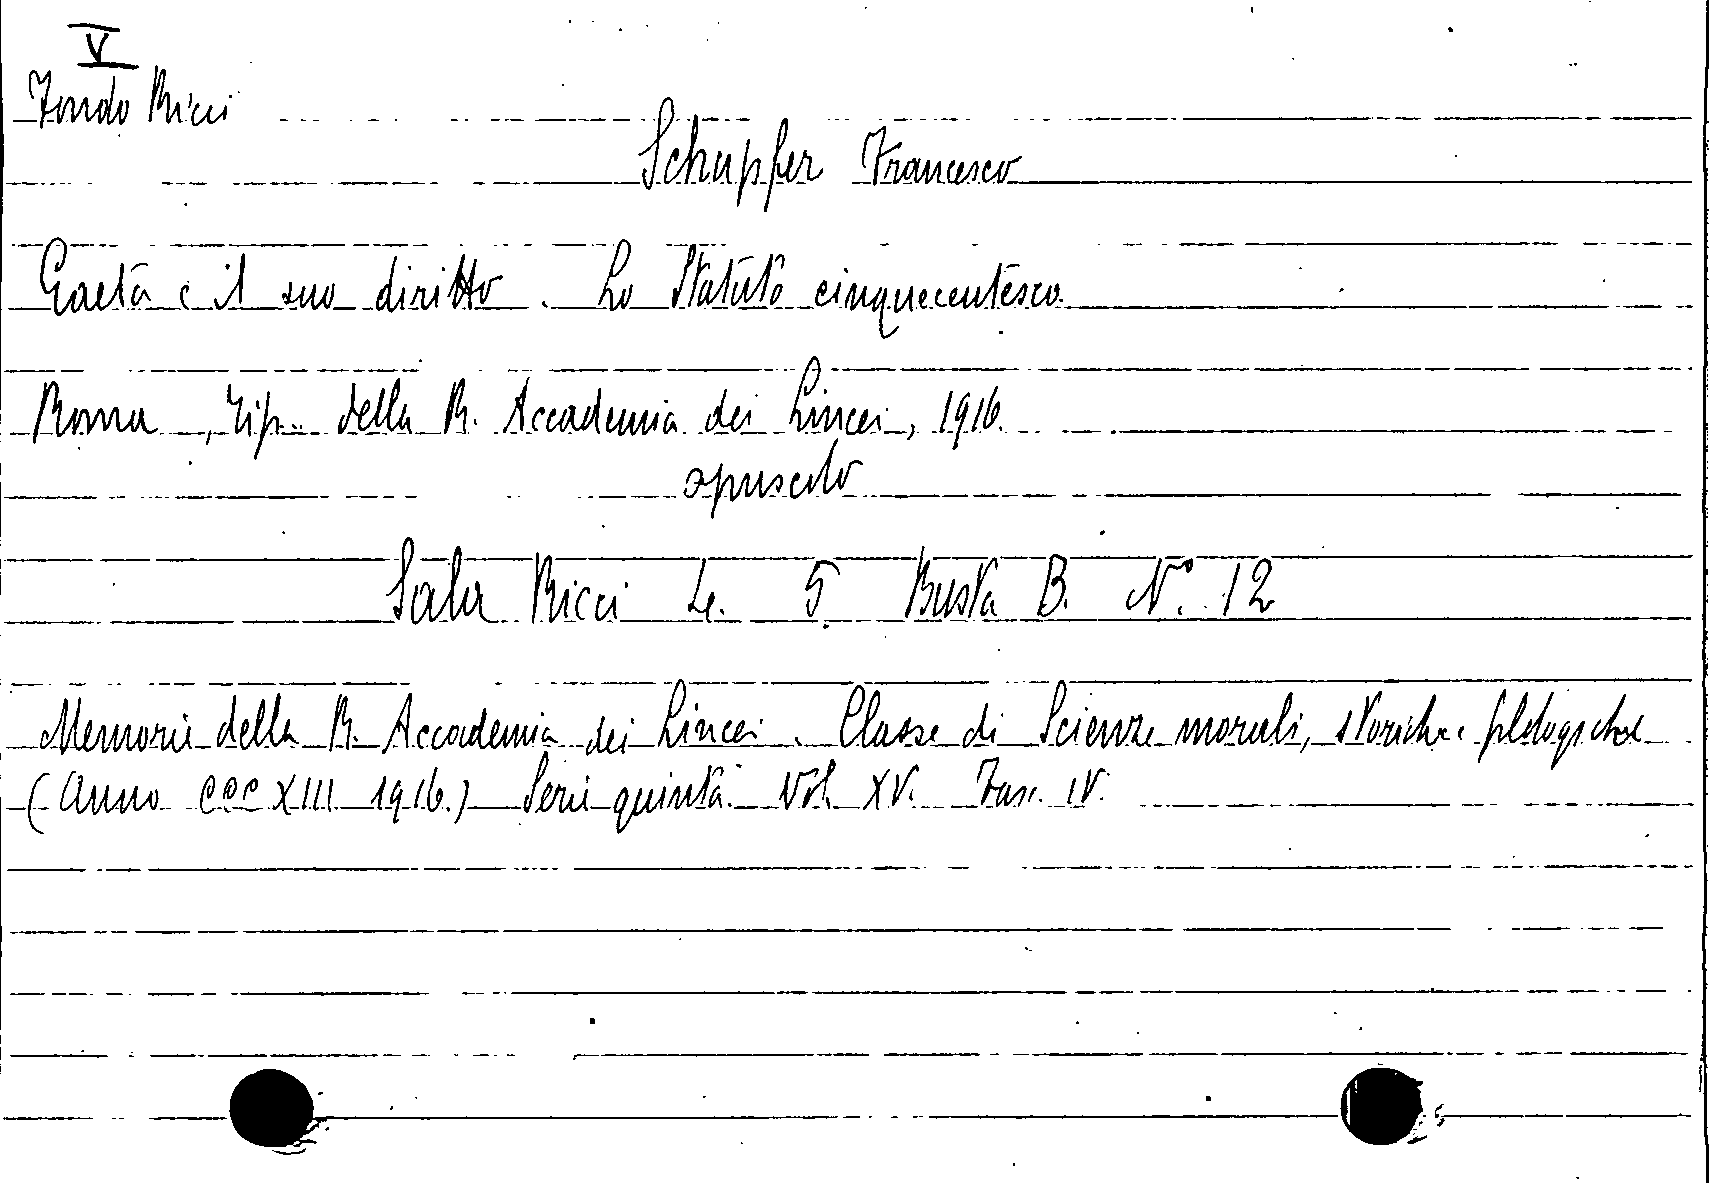 V
Fondo Ricci
Schupfer Francesco
Gaeta e il suo diritto. Lo Statuto cinquecentesco.
Roma, Tip. della R. Accademia dei Lincei, 1916.
opuscolo
Sala Ricci Le. 5 Busta B. N° 12
Memorie della R. Accademia dei Lincei. Classe di Scienze morali, storiche e filologiche
(Anno CCCXIII 1916.) Serie quinta. Vol. XV. Fasc. IV.